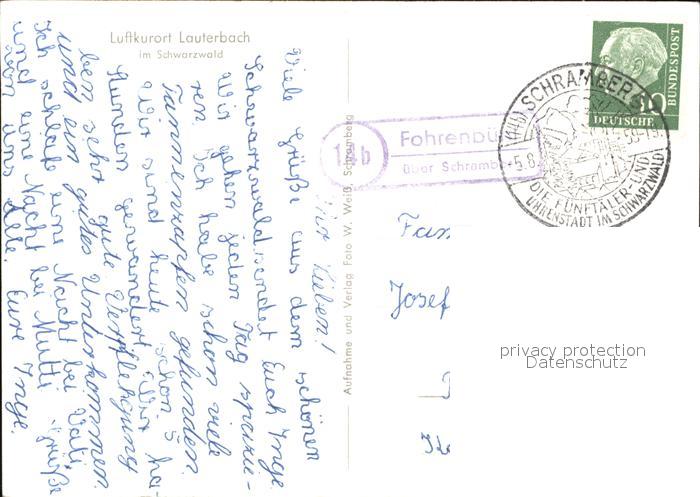 Luftkurort Lauterbach
im Schwarzwald
Ihr Lieben!
Viele Grüße aus dem schönen
Schwarzwald sendet Euch Inge.
Wir gehen jeden Tag spazie-
ren. Ich habe schon viele
Tannenzapfen gefunden.
Wir sind heute schon 5
Stunden gewandert. Wir ha-
ben sehr gute Verpflegung
und ein gutes Unterkommen.
Ich schlafe eine Nacht bei Vati
und eine Nacht bei Mutti. Grüße
von uns alle. Eure Inge.
Aufnahme und Verlag Foto W. Weiß, Schramberg
14b
Fohrenbü
über Schrambe
SCHRAMBERG
-5.8.
DIE FÜNFTÄLER- UND
UHRENSTADT IM SCHWARZWALD
DEUTSCHE
BUNDESPOST
Fam
Josef
privacy protection
Datenschutz